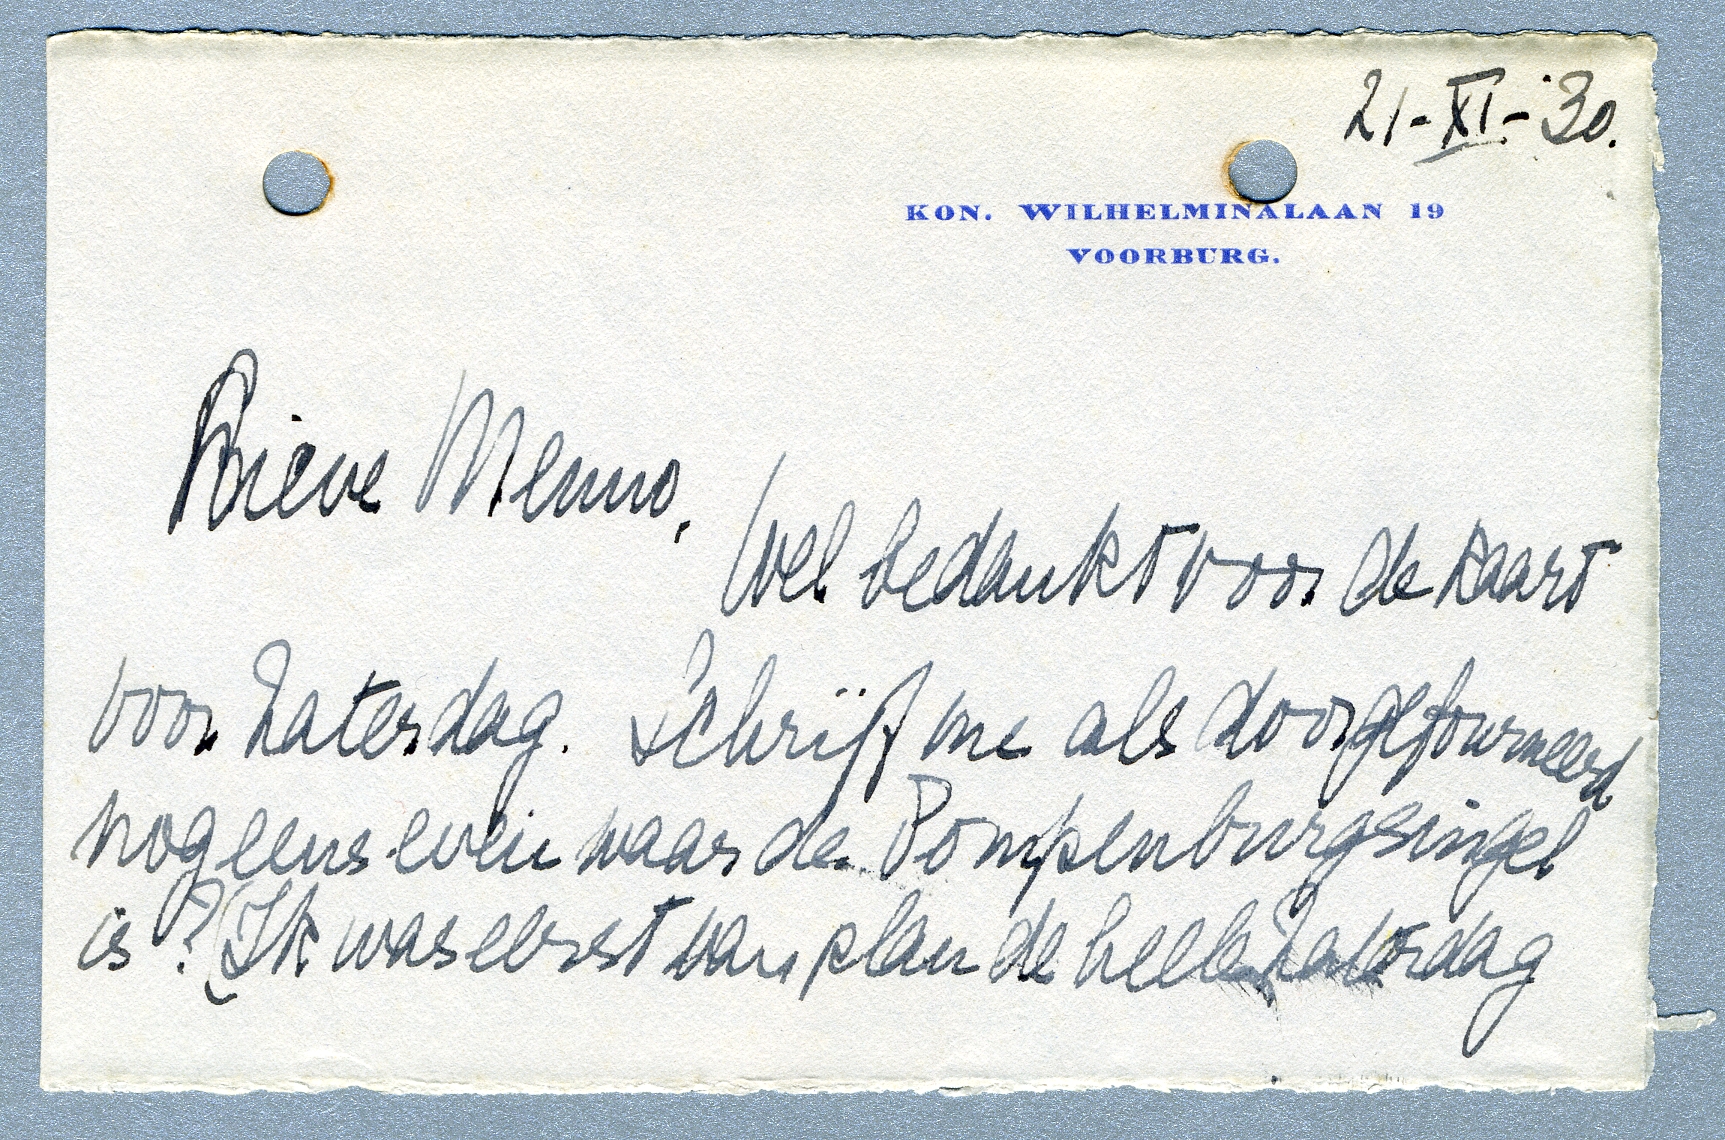 21-XI-'30.
KON. WILHELMINALAAN 19
VOORBURG.
Lieve Menno,
Wel bedankt voor de kaart
voor Zaterdag. Schrijf me als doorgefourneerd
nog eens even waar de Pompenburgsingel
is? (Ik was eerst van plan de heele Zaterdag